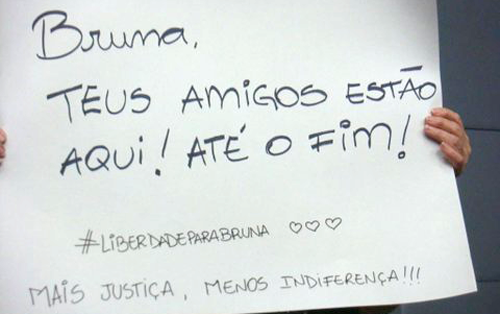 Bruna,
TEUS AMIGOS ESTÃO
AQUI! ATÉ O FIM!
#LIBERDADEPARABRUNA ♡♡♡
MAIS JUSTIÇA, MENOS INDIFERENÇA!!!